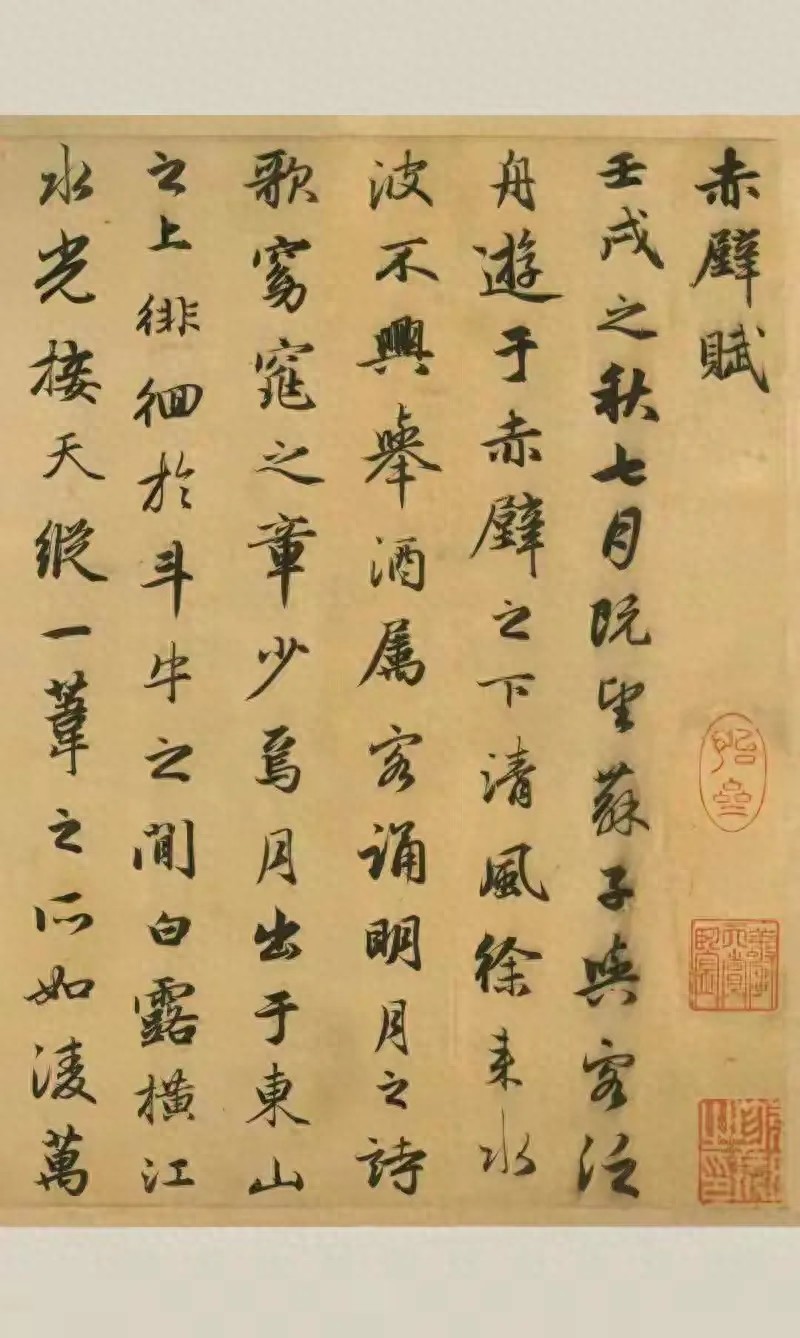 赤壁賦
壬戌之秋七月既望蘇子與客泛
舟遊于赤壁之下清風徐来水
波不興舉酒属客誦明月之詩
歌窈窕之章少焉月出于東山
之上徘徊於斗牛之間白露横江
水光接天縱一葦之所如凌萬